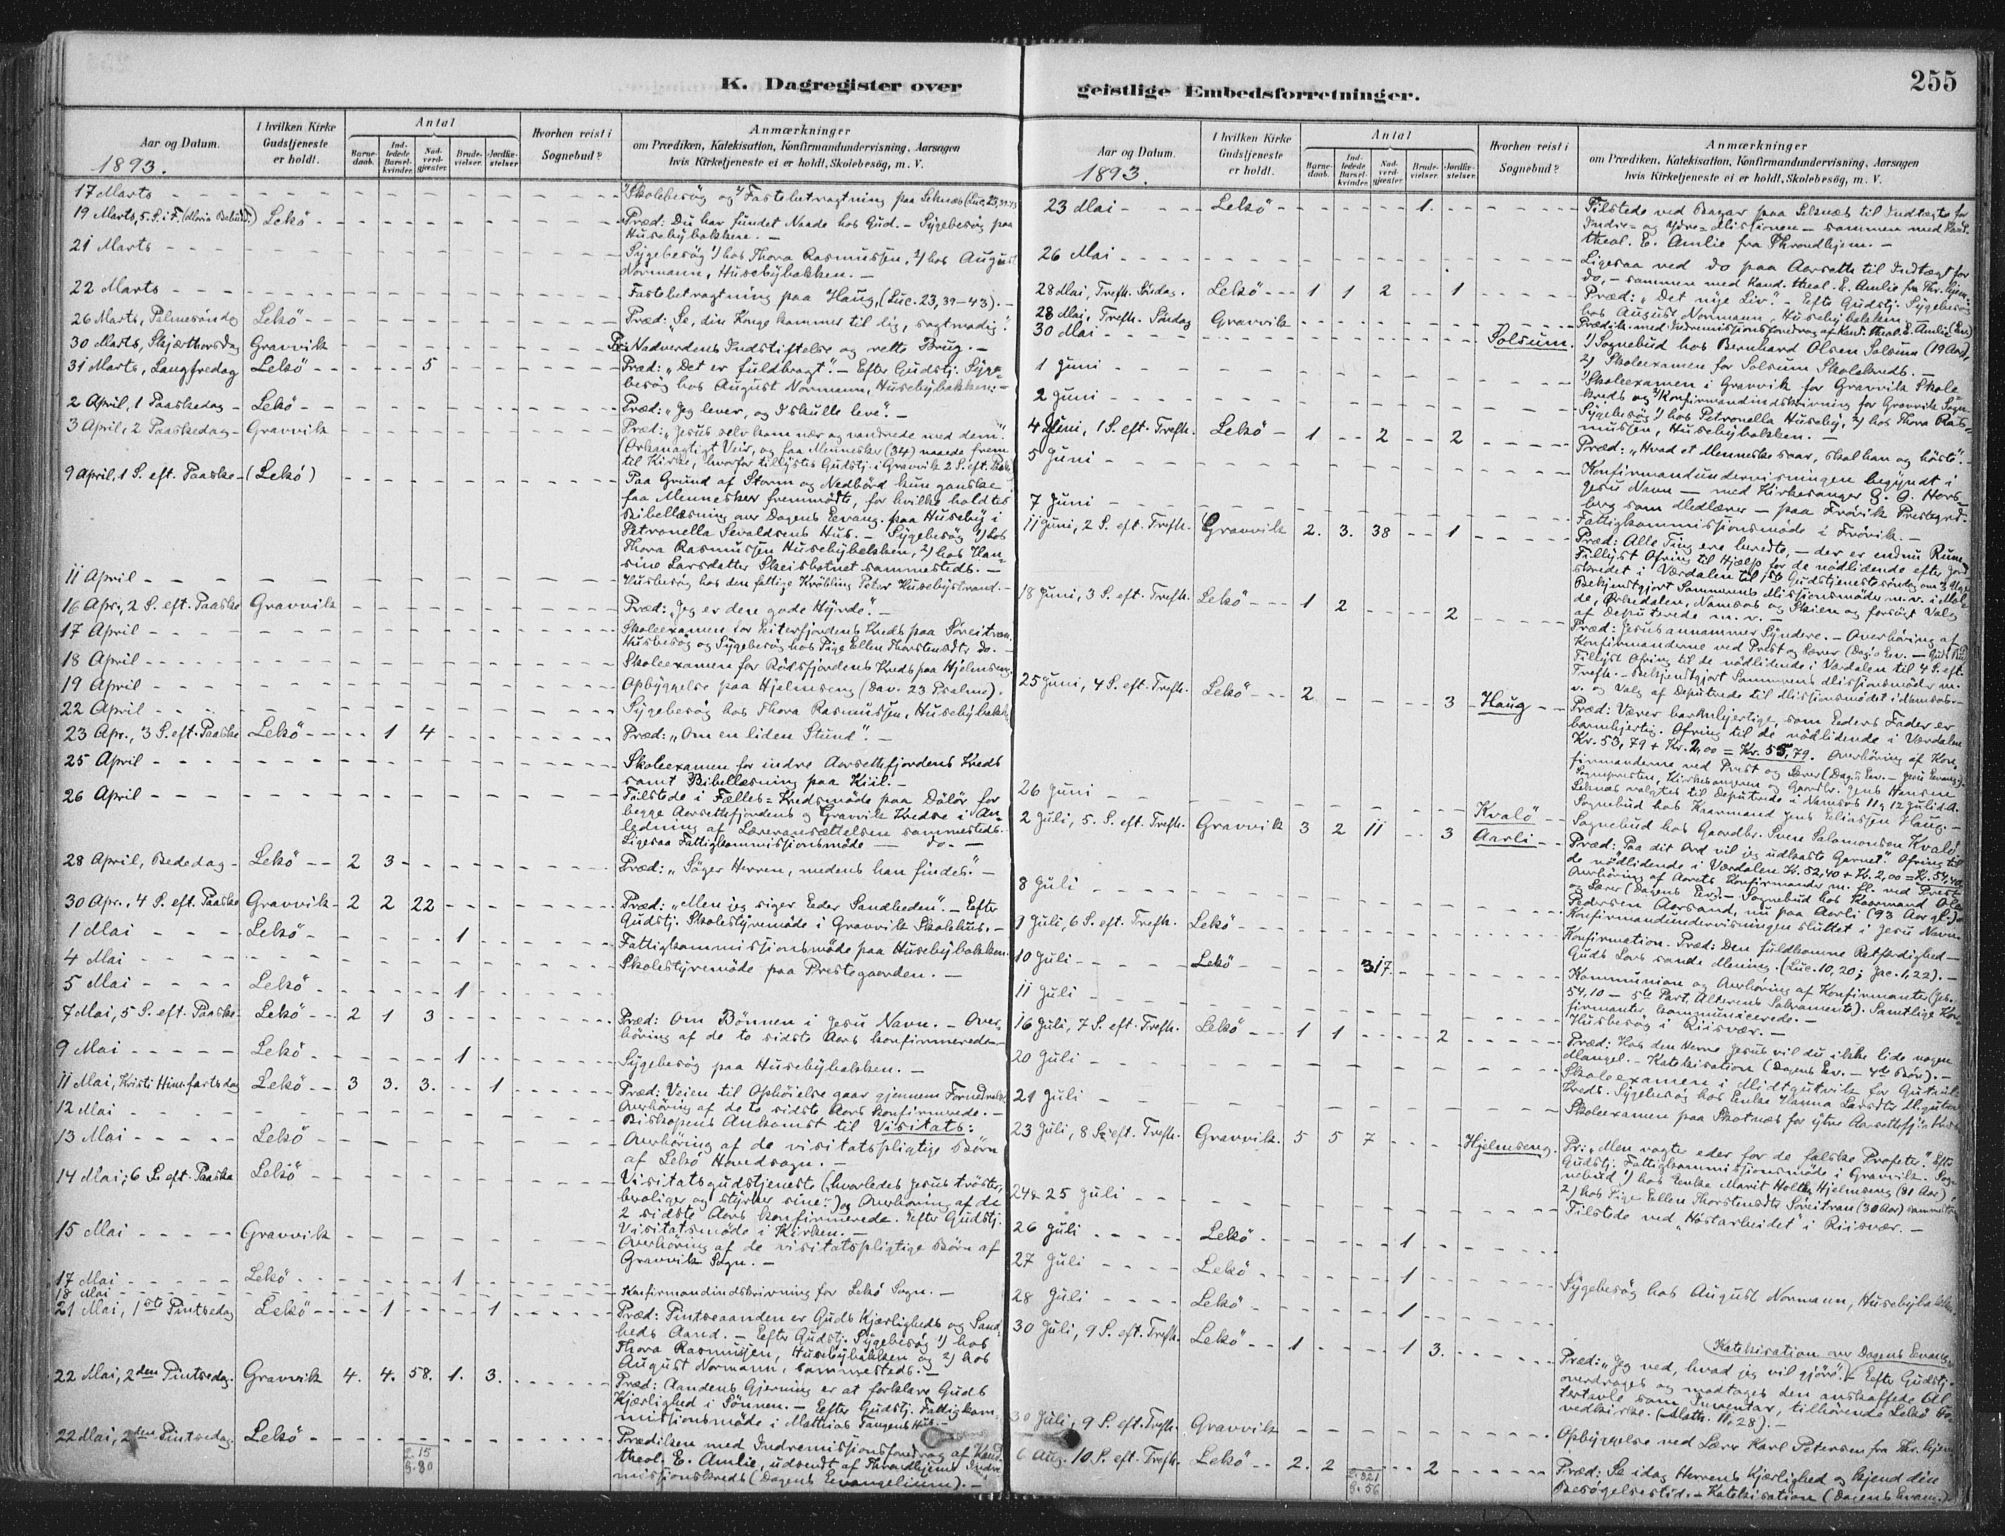 K. Dagregister over
geistlige Embedsforretninger.
255
Aar og Datum.
I hvilken Kirke Gudstjeneste er holdt.
Antal
Barnedaab.
Indledede Barselkvinder.
Nadverdgjæster.
Brudevielser.
Jordfæstelser.
Hvorhen reist i Sognebud?
Anmærkninger
om Prædiken, Katekisation, Konfirmandundervisning, Aarsagen
hvis Kirketjeneste ei er holdt, Skolebesøg, m. V.
1893.
17 Marts
Skolebesøg og Fastebetragtning paa Leknæs
19 Marts, 5. S. i F. Lekö
Præd: Du har fundet Naade hos Gud. – Sygebesøg paa
Husebybakken. –
21 Marts
Sygebesøg 1) hos Thora Rasmussen, 2) hos August
Normann, Husebybakken. –
22 Marts
Fastebetragtning paa Haug, (Luc. 23, 39–43). –
26 Marts, Palmesöndag Lekö
Præd: "Se, din Konge kommer til dig, sagtmodig".
30 Marts, Skjærthorsdag Gravvik
Pr: Nadverdens Indstiftelse og rette Brug. –
31 Marts, Langfredag Lekö 5
Præd: "Det er fuldbragt". – Efter Gudstj. Syge-
besøg hos August Normann, Husebybakken. –
2 April, 1 Paaskedag Lekö
Præd: "Jeg lever, og I skulle leve". –
3 April, 2 Paaskedag Gravvik
Præd: "Jesus selv kom nær og vandrede med dem".
(Orkanagtigt Veir, og faa Mennesker (34) naaede frem
til Kirke, hvorfor tillystes Gudstj. i Gravvik 2 S. eft. Paaske)
9 April, 1 S. eft. Paaske (Lekö)
Paa Grund af Storm og Nedbörd kun ganske
faa Mennesker fremmödte, for hvilke holdtes
Bibellæsning over Dagens Evang. paa Huseby i
Petronella Sevaldsens Hus. – Sygebesøg 1) hos
Thora Rasmussen Husebybakken, 2) hos Han-
sine Larsdatter Skeisbotnet sammesteds. –
11 April
Husbesøg hos den fattige Kröbling Peter Husebystrand. –
16 Apr., 2 S. eft. Paaske Gravvik
Præd: "Jeg er den gode Hyrde". –
17 April
Skoleexamen for Eiterfjordens Kreds paa Söreitran.
Husbesøg og Sygebesøg hos Pige Ellen Thorstensdtr do. –
18 April
Skoleexamen for Rödsfjordens Kreds paa Hjelmseng.
19 April
Opbyggelse paa Hjelmseng (Dav. 23 Psalme).
22 April
Sygebesøg hos Thora Rasmussen, Husebybakk.
23 Apr., 3 S. eft. Paaske Lekö 1 4
Præd: "Om en liden Stund". –
25 April
Skoleexamen for indre Aarsetfjordens Kreds
samt Bibellæsning paa Kiil. –
26 April
Tilstede i Fælles-Kredsmöde paa Dölör for
begge Aarsetfjordens og Gravvik Kredse i An-
ledning af Læreransættelsen sammesteds.
Ligesaa Fattigkommissionsmöde — do. —
28 April, Bededag Lekö 2 3
Præd: "Söger Herren, medens han findes". –
30 Apr., 4 S. eft. Paaske Gravvik 2 2 22
Præd: "Men jeg siger Eder Sandheden". – Efter
Gudstj. Skolestyremöde i Gravvik Skolehus. –
1 Mai Lekö 1
Fattigkommissionsmöde paa Husebybakken.
4 Mai
Skolestyremöde paa Prestegaarden. –
5 Mai Lekö 1
7 Mai, 5 S. eft. Paaske Lekö 2 1 3
Præd: Om Bönnen i Jesu Navn. – Over-
höring af de to sidste Aars konfirmerede –
9 Mai Lekö 1
Sygebesøg paa Husebybakken. –
11 Mai, Kristi Himmelfartsdag Lekö 3 3. 3. 1
Præd: Veien til Ophöielse gaar gjennem Fornedrelse.
Overhöring af de to sidste Aars konfirmerede. –
12 Mai
Biskopens Ankomst til Visitats:
13 Mai Lekö
Overhöring af de visitatspligtige Börn
af Lekö Hovedsogn. –
14 Mai, 6 S. eft. Paaske Lekö
Visitatsgudstjeneste (hvorledes Jesus tröster,
beroliger og styrker sine) og Overhöring af de
2 sidste Aars konfirmerede. Efter Gudstj.
Visitatsmöde i Kirken. –
15 Mai Gravvik
Overhöring af de visitatspligtige Börn af
Gravvik Sogn. –
17 Mai Lekö 1
18 Mai
Konfirmandindskrivning for Lekö Sogn. –
21 Mai, 1ste Pintsedag Lekö 1 1
Præd: Pintseaanden er Guds Kjærligheds og Sand-
heds Aand. – Efter Gudstj. Sygebesøg 1) hos
Thora Rasmussen, Husebybakken og 2) hos
August Normann, sammesteds. –
22 Mai, 2den Pintsedag. Gravvik 4. 4. 58. 1. 3.
Præd: Aandens Gjerning er at forklare Guds
Kjærlighed i Sönnen. – Efter Gudstj. Fattigkom-
missionsmöde i Matthias Tangens Hus. –
22 Mai, 2den Pintsedag. Lekö
Prædiken med Indremissionsforedrag af Kand.
theol. E. Amlie, udsendt af Throndhjems Indre-
missionskreds (Dagens Evangelium). –
Aar og Datum.
I hvilken Kirke Gudstjeneste er holdt.
Antal
Barnedaab.
Indledede Barselkvinder.
Nadverdgjæster.
Brudevielser.
Jordfæstelser.
Hvorhen reist i Sognebud?
Anmærkninger
om Prædiken, Katekisation, Konfirmandundervisning, Aarsagen
hvis Kirketjeneste ei er holdt, Skolebesøg, m. V.
1893.
23 Mai Lekö 1.
Tilstede ved Bazar paa Leknæs til Indtægt for
Indre- og Ydre-Missionen – sammen med Kand.
theol. E. Amlie fra Throndhjem. –
26 Mai
Ligesaa ved do paa Aarsette til Indtægt for
do, – sammen med Kand. theol. E. Amlie fra Thr.hjem.
28 Mai, Trefh. Söndag. Lekö 1 1 2 1
Præd: "Det nye Liv". – Efter Gudstj. Sygebesøg
hos August Normann, Husebybakken. –
28 Mai, Trefh. Söndag Gravvik
Prædik. med Indremissionsforedrag af Kand. theol. E. Amlie
30 Mai Solsum.
1) Sognebud hos Bernhard Olsen Solsum (19 Aar),
2) Skoleexamen for Solsum Skolekreds. –
1 Juni
Skoleexamen i Gravvik for Gravvik Skole-
kreds og Konfirmandindskrivning for Gravvik Sogn.
2 Juni
Sygebesøg 1) hos Petronella Huseby, 2) hos Thora Ras-
mussen, Husebybakken. –
4 Juni, 1 S. eft. Trefh. Lekö 1 2 2
Præd: "Hvad et Menneske saar, skal han og höste". –
5 Juni
Konfirmandundervisningen begyndt i
Jesu Navn – med Kirkesanger O. O. Hors-
berg som Medlærer – paa Frövik Prestegrd.
7 Juni
Fattigkommissionsmöde i Frövik. –
11 Juni, 2 S. eft. Trefh. Gravvik 2. 3. 38 1
Præd: Alle Ting ere beredte, – der er endnu Rum.
Tillyst Ofring til Hjælp for de nödlidende efter Jord-
skredet i Værdalen til 1ste Gudstjenestesöndag om 3 Uger
Bekjentgjort Sommerens Missionsmöder m. v. i Mol-
de, Orkedalen, Namsos og Skien og forsøgt Valg
af Deputerede m. v. –
18 Juni, 3 S. eft. Trefh. Lekö 1 2 2
Præd: Jesus annammer Syndere. – Overhöring af
Konfirmanderne ved Prest og Lærer
Tillyst Ofring til de nödlidende i Værdalen til 4 S. eft.
Trefh. – Bekjentgjort Sommerens Missionsmöder m.
v. og Valg af Deputerede til Missionsmödet i Namsos. –
25 Juni, 4 S. eft. Trefh. Lekö 2 3 Haug
Præd: Værer barmhjertige, som Eders Fader er
barmhjertig. Ofring til de nödlidende i Værdalen
Kr. 53,79 + Kr. 2,00 = Kr. 55,79. Overhöring af Kon-
firmanderne ved Prest og Lærer
Sognepresten, Kirkesangeren og Gaardbr. Jens Hansen
Leknæs valgtes til Deputerede i Namsos 11 og 12 Juli d. A.
26 Juni
Sognebud hos Kaarmand Jens Eliassen Haug. –
Kvalö
Sognebud hos Gaardbr. Svene Salomonsen Kvalö
2 Juli, 5. S. eft. Trefh. Gravvik 3 2 11 3 Aarli
Præd: Paa dit Ord vil jeg udkaste Garnet". Ofring til
de nödlidende i Værdalen Kr. 52,40 + Kr. 2,00 = Kr. 54,40
Overhöring af Aarets Konfirmander m. fl. ved Prest
og Lærer (Dagens Ev.) – Sognebud hos Kaarmand Ole
Pedersen Aarsand, nu paa Aarli (93 Aar gl.)
8 Juli
Konfirmandundervisningen sluttet i Jesu Navn.
9 Juli, 6 S. eft. Trefh. Lekö
Konfirmation. Præd: Den fuldkomne Retfærdighed –
Guds Lovs sande Mening. (Luc. 10, 20; Jac. 1, 22). –
10 Juli Lekö 317.
Kommunion og Overhöring af Konfirmanter (Jes.
54, 10 – 5te Part. Alterens Sakramente). Samtlige Kon-
firmanter kommunicerede. –
11 Juli
Husbesøg i Riisvær. –
16 Juli, 7 S. eft. Trefh. Lekö 1 1 2
Præd: Hos den Herre Jesus vil du ikke lide nogen
Mangel. – Katekisation (Dagens Ev. – 4te Bön). –
20 Juli
Skoleexamen i Midtgutvik for Gutvik
Kreds. Sygebesøg hos Enke Hanna Larsdtr M.gutvik
21 Juli
Skoleexamen paa Skotnæs for ytre Aarsetfj.
23 Juli, 8 S. eft. Trefh. Gravvik. 5 5 7 Hjelmseng.
Pr: "Men vogter eder for de falske Profeter". Efter
Gudstj. Fattigkommissionsmöde i Gravvik. Sog-
nebud 1) hos Enke Marit Holte, Hjelmseng (81 Aar)
2) hos Pige Ellen Thorstensdtr Söreitran (30 Aar) sammesteds
24 & 25 Juli
Tilstede ved "Höstarbeidet" i Riisvær. –
26 Juli Lekö 1
27 Juli Lekö 1
28 Juli Lekö 1
Sygebesøg hos August Normann, Husebybakken
30 Juli, 9 S. eft. Trefh. Lekö 1 1 3.
Katekisation over Dagens Evang.
Præd: "Jeg ved, hvad jeg vil gjöre". – Efter Gudstj.
overdroges og modtoges den anskaffede Al-
tertavle som Inventar, tilhörende Lekö Ho-
vedkirke. (Matth. 11, 28). –
30 Juli, 9 S. eft. Trefh. Gravvik
Opbyggelse ved Lærer Karl Petersen fra Thr.hjem
6 Aug. 10 S. eft. Trefh. Lekö 2. 2 2
Præd: Se idag Herrens Kjærlighed og kjend din
Besögelsestid. – Katekisation (Dagens Evang.)